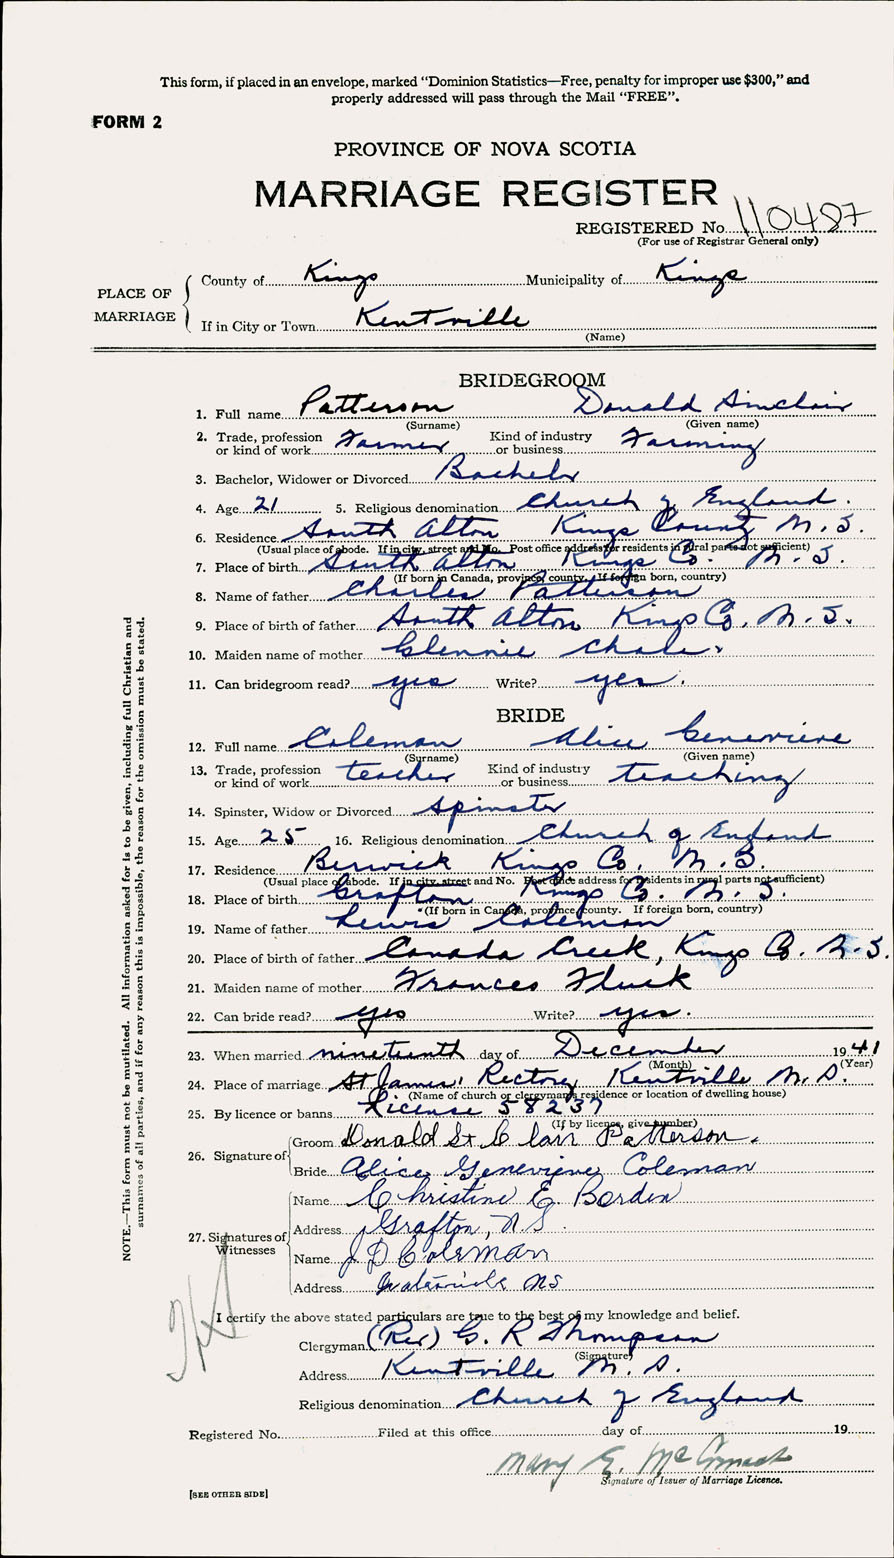 This form, if placed in an envelope, marked “Dominion Statistics—Free, penalty for improper use $300,” and
properly addressed will pass through the Mail “FREE”.
FORM 2
PROVINCE OF NOVA SCOTIA
MARRIAGE REGISTER
REGISTERED No. 110487
(For use of Registrar General only)
PLACE OF MARRIAGE
County of Kings Municipality of Kings
If in City or Town Kentville
(Name)
BRIDEGROOM
1. Full name Patterson Donald Sinclair
(Surname) (Given name)
2. Trade, profession or kind of work Farmer Kind of industry or business Farming
3. Bachelor, Widower or Divorced Bachelor
4. Age 21 5. Religious denomination Church of England.
6. Residence South Alton Kings County N.S.
(Usual place of abode. If in city, street and No. Post office address for residents in rural parts not sufficient)
7. Place of birth South Alton Kings Co. N.S.
(If born in Canada, province county. If foreign born, country)
8. Name of father Charles Patterson
9. Place of birth of father South Alton Kings Co. N.S.
10. Maiden name of mother Glennie
11. Can bridegroom read? yes Write? yes.
BRIDE
12. Full name Coleman Alice Genevieve
(Surname) (Given name)
13. Trade, profession or kind of work teacher Kind of industry or business teaching
14. Spinster, Widow or Divorced Spinster
15. Age 25 16. Religious denomination Church of England
17. Residence Berwick Kings Co. N.S.
(Usual place of abode. If in city, street and No. Post office address for residents in rural parts not sufficient)
18. Place of birth Grafton Kings Co. N.S.
(If born in Canada, province county. If foreign born, country)
19. Name of father Lewis Coleman
20. Place of birth of father Canada Creek, Kings Co. N.S.
21. Maiden name of mother Frances Fluck
22. Can bride read? yes Write? yes.
23. When married nineteenth day of December 1941
(Month) (Year)
24. Place of marriage St James' Rectory Kentville N.S.
(Name of church or clergyman's residence or location of dwelling house)
25. By licence or banns License 58237
(If by licence, give number)
26. Signature of
Groom Donald St Clair Patterson.
Bride Alice Genevieve Coleman
27. Signatures of Witnesses
Name Christine E. Borden
Address Grafton, N.S.
Name J D Coleman
Address NS
I certify the above stated particulars are true to the best of my knowledge and belief.
Clergyman (Rev) G. R Thompson
(Signature)
Address Kentville N.S.
Religious denomination Church of England
Registered No. Filed at this office day of 19
Mary E. McCormack
Signature of Issuer of Marriage Licence.
[SEE OTHER SIDE]
NOTE.—This form must not be mutilated. All Information asked for is to be given, including full Christian and
surnames of all parties, and if for any reason this is impossible, the reason for the omission must be stated.